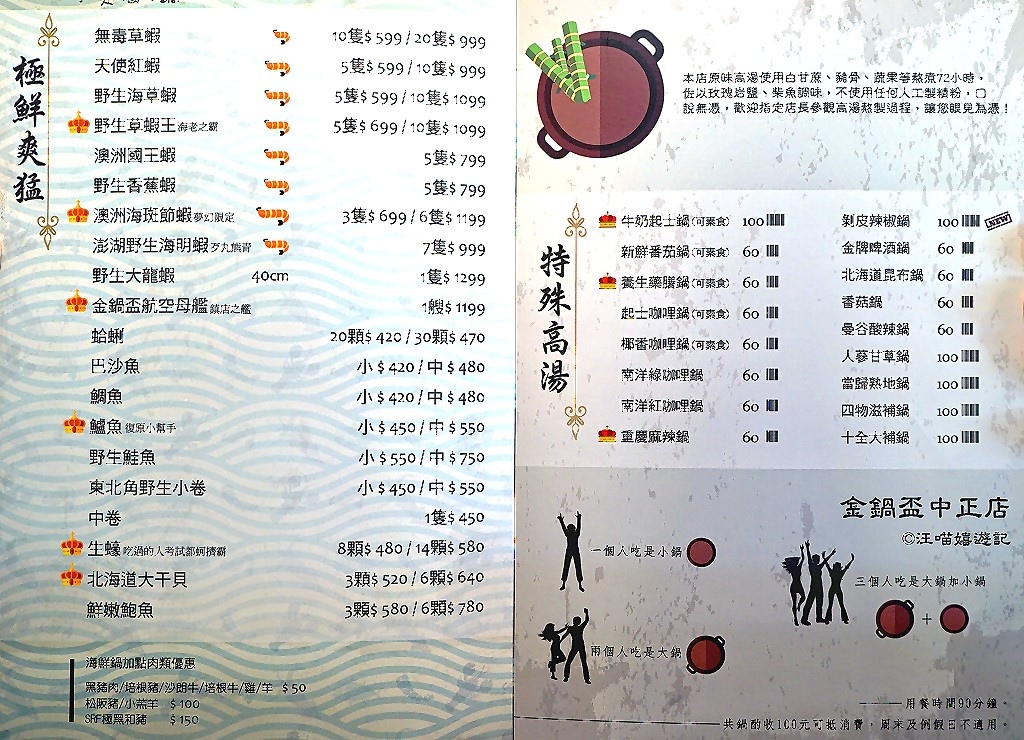 極鮮爽猛
無毒草蝦 10隻$ 599 / 20隻$ 999
天使紅蝦 5隻$ 599 / 10隻$ 999
野生海草蝦 5隻$ 599 / 10隻$ 1099
野生草蝦王 海老之霸 5隻$ 699 / 10隻$ 1099
澳洲國王蝦 5隻$ 799
野生香蕉蝦 5隻$ 799
澳洲海斑節蝦 夢幻限定 3隻$ 699 / 6隻$ 1199
澎湖野生海明蝦 歹丸熊青 7隻$ 999
野生大龍蝦 40cm 1隻$ 1299
金鍋盃航空母艦 鎮店之艦 1艘$ 1199
蛤蜊 20顆$ 420 / 30顆$ 470
巴沙魚 小 $ 420 / 中 $ 480
鯛魚 小 $ 420 / 中 $ 480
鱸魚 復原小幫手 小 $ 450 / 中 $ 550
野生鮭魚 小 $ 550 / 中 $ 750
東北角野生小卷 小 $ 450 / 中 $ 550
中卷 1隻$ 450
生蠔 吃過的人考試都蚵擠霸 8顆$ 480 / 14顆$ 580
北海道大干貝 3顆$ 520 / 6顆$ 640
鮮嫩鮑魚 3顆$ 580 / 6顆$ 780
海鮮鍋加點肉類優惠
黑豬肉/培根豬/沙朗牛/培根牛/雞/羊 $ 50
松阪豬/小羔羊 $ 100
SRF極黑和豬 $ 150
本店原味高湯使用白甘蔗、豬骨、蔬果等熬煮72小時，
佐以玫瑰岩鹽、柴魚調味，不使用任何人工製精粉，口
說無憑，歡迎指定店長參觀高湯熬製過程，讓您眼見為憑！
特殊高湯
牛奶起士鍋(可素食) 100
新鮮番茄鍋(可素食) 60
養生藥膳鍋(可素食) 60
起士咖哩鍋(可素食) 60
椰香咖哩鍋(可素食) 60
南洋綠咖哩鍋 60
南洋紅咖哩鍋 60
重慶麻辣鍋 60
剝皮辣椒鍋 100 NEW
金牌啤酒鍋 60
北海道昆布鍋 60
香菇鍋 60
曼谷酸辣鍋 60
人蔘甘草鍋 100
當歸熟地鍋 100
四物滋補鍋 100
十全大補鍋 100
金鍋盃中正店
©汪喵嬉遊記
一個人吃是小鍋
三個人吃是大鍋加小鍋
+
兩個人吃是大鍋
用餐時間90分鐘。
共鍋酌收100元可抵消費，周末及例假日不適用。